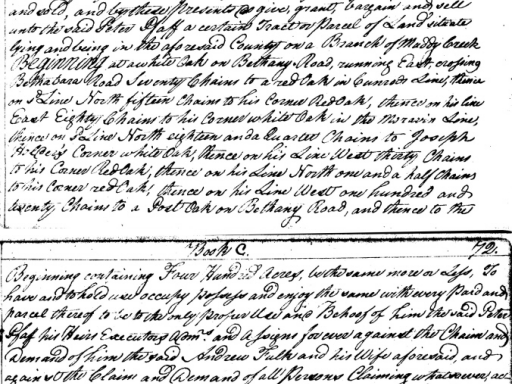 and sold, and by these presents do give, grant, bargain and sell
unto the said Peter Pfaff a certain Tract or Parcel of Land situate
lying and being in the aforesaid County on a Branch of Muddy Creek
Beginning at a white Oak on Bethany Road, running East, crossing
Bethabara Road Seventy Chains to a red Oak in Line, thence
on Line North fifteen Chains to his Corner Red Oak, thence on his line
East Eighty Chains to his Corner white Oak in the Moravin Line,
thence on Line North eighteen and a Quarter Chains to Joseph
Corner white Oak, thence on his Line West thirty Chains
to his Corner Red Oak, thence on his Line North one and a half Chains
to his Corner red Oak, thence on his Line West one hundred and
twenty Chains to a Post Oak on Bethany Road, and thence to the
Book C. 72.
Beginning containing Four Hundred Acres, be the same more or Less, To
have and to hold use occupy possess and enjoy the same with every Part and
parcel thereof to be to the only proper Use and Behoof of him the said Peter
Pfaff his Heirs Executors Admrs. and Assigns forever against the Claim and
Demand of him the said Andrew Fulk and his Wife aforesaid, and
against the Claim and Demand of all Persons Claiming whatsoever, all